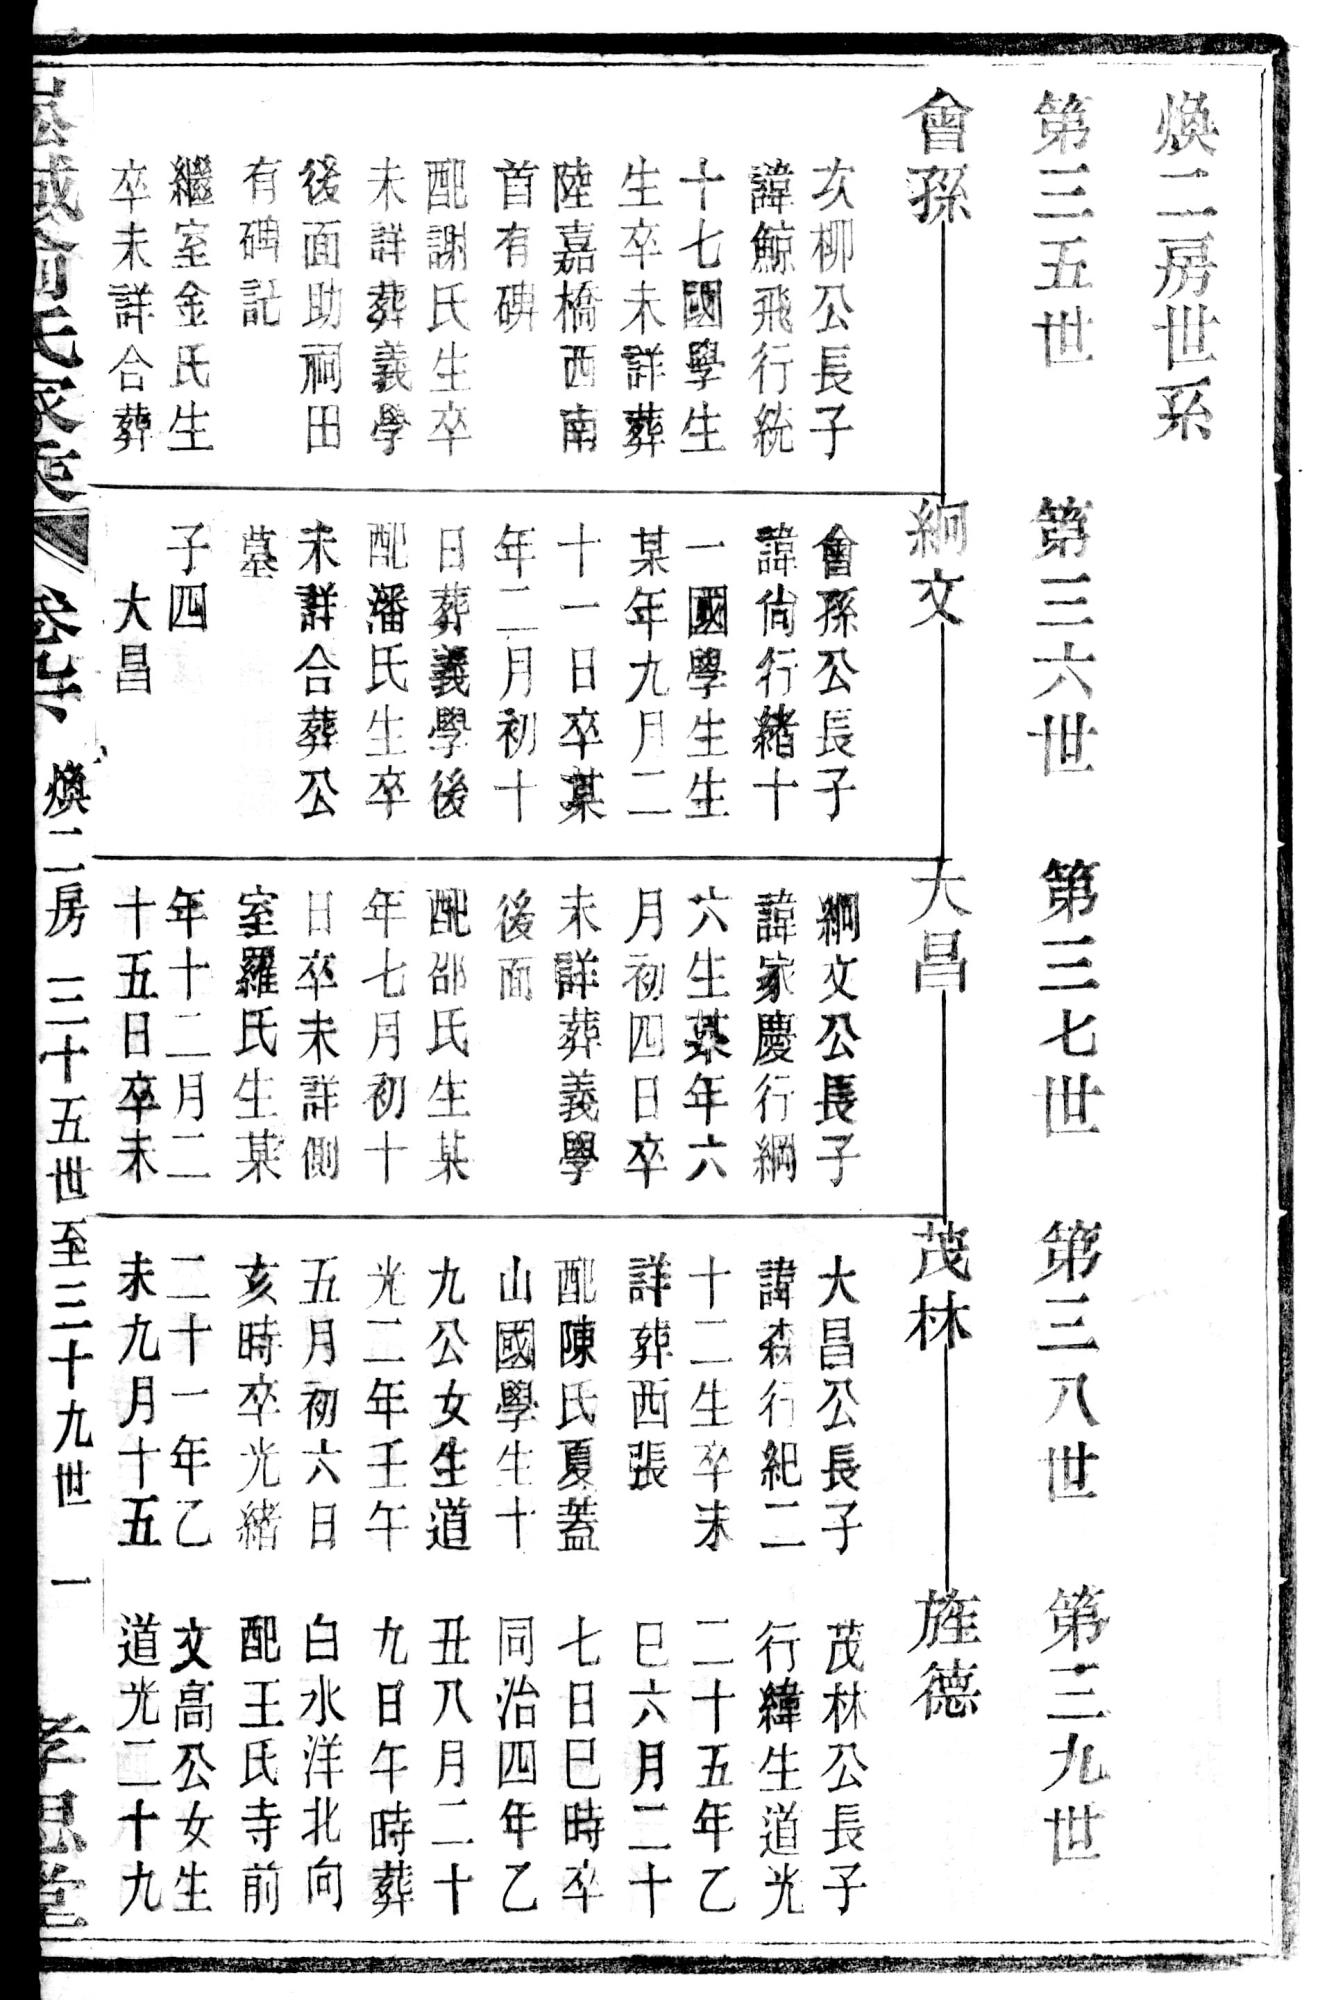 煥二房世系
第三五世
會孫
次柳公長子
諱鯨飛行統
十七國學生
生卒未詳葬
陸嘉橋西南
首有碑
配謝氏生卒
未詳葬義學
後面助祠田
有碑記
繼室金氏生
卒未詳合葬
第三六世
絅文
會孫公長子
諱尙行緒十
一國學生生
某年九月二
十一日卒某
年二月初十
日葬義學後
配潘氏生卒
未詳合葬公
墓
子四
大昌
第三七世
大昌
絅文公長子
諱家慶行綱
六生某年六
月初四日卒
未詳葬義學
後面
配邵氏生某
年七月初十
日卒未詳側
室羅氏生某
年十二月二
十五日卒未
第三八世
茂林
大昌公長子
諱森行紀二
十二生卒未
詳葬西張
配陳氏夏蓋
山國學生十
九公女生道
光二年壬午
五月初六日
亥時卒光緒
二十一年乙
未九月十五
第三九世
旌德
茂林公長子
行緯生道光
二十五年乙
巳六月二十
七日巳時卒
同治四年乙
丑八月二十
九日午時葬
白水洋北向
配王氏寺前
文高公女生
道光二十九
氏家乘
煥二房 三十五世至三十九世 一
孝思堂